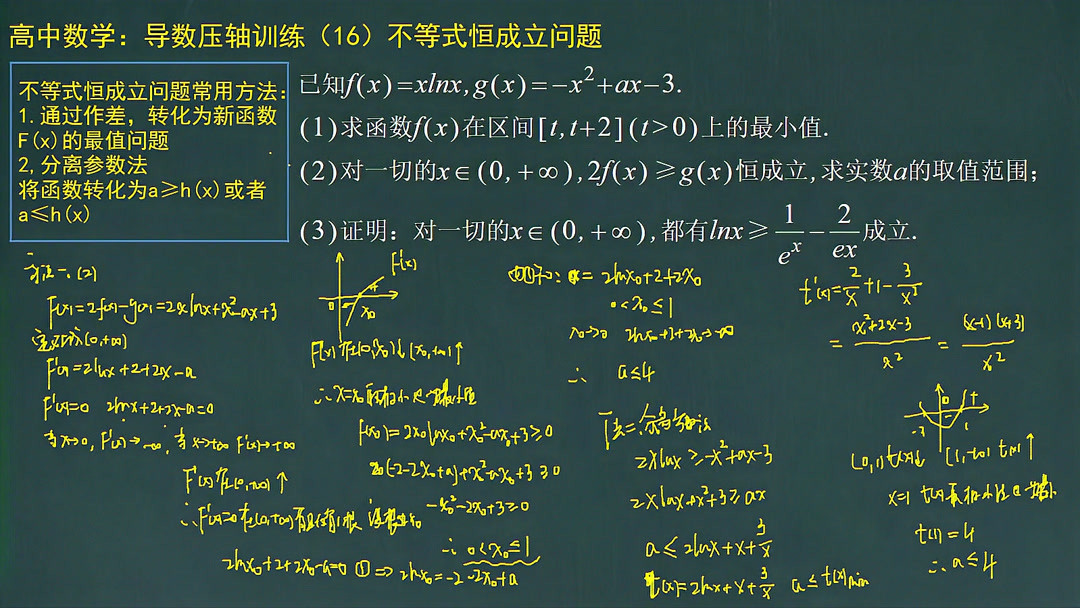 高中数学：导数压轴训练（16）不等式恒成立问题
不等式恒成立问题常用方法：
1.通过作差，转化为新函数
F(x)的最值问题
2,分离参数法
将函数转化为a≥h(x)或者
a≤h(x)
已知f(x)=xlnx,g(x)=−x²+ax−3.
(1)求函数f(x)在区间[t,t+2](t>0)上的最小值.
(2)对一切的x∈(0,+∞),2f(x)≥g(x)恒成立,求实数a的取值范围;
(3)证明：对一切的x∈(0,+∞),都有lnx≥1/eˣ−2/ex成立.
方法一.(2)
F(x)=2f(x)-g(x)=2xlnx+x²-ax+3
定义域(0,+∞)
F'(x)=2lnx+2+2x-a
F'(x)=0 2lnx+2+2x-a=0
当x→0, F'(x)→-∞, 当x→+∞ F'(x)→+∞
F'(x)在(0,+∞)↑
∴F'(x)=0在(0,+∞)有且仅有1根 设根为x₀
2lnx₀+2+2x₀-a=0 ① ⇒ 2lnx₀=-2-2x₀+a
F'(x)
0
x₀
F(x)在(0,x₀)↓(x₀,+∞)↑
∴x=x₀
F(x₀)=2x₀lnx₀+x₀²-ax₀+3≥0
x₀(-2-2x₀+a)+x₀²-ax₀+3≥0
-x₀²-2x₀+3≥0
∴0<x₀≤1
由①知: a=2lnx₀+2+2x₀
0<x₀≤1
x₀→0 2lnx₀+2+2x₀→-∞
∴ a≤4
2xlnx≥-x²+ax-3
2xlnx+x²+3≥ax
a≤2lnx+x+3/x
t(x)=2lnx+x+3/x a≤t(x)min
t'(x)=2/x+1-3/x²
=(x²+2x-3)/x²=(x-1)(x+3)/x²
-3
0
1
(0,1)t(x)↓ (1,+∞)t(x)↑
t(1)=4
∴a≤4